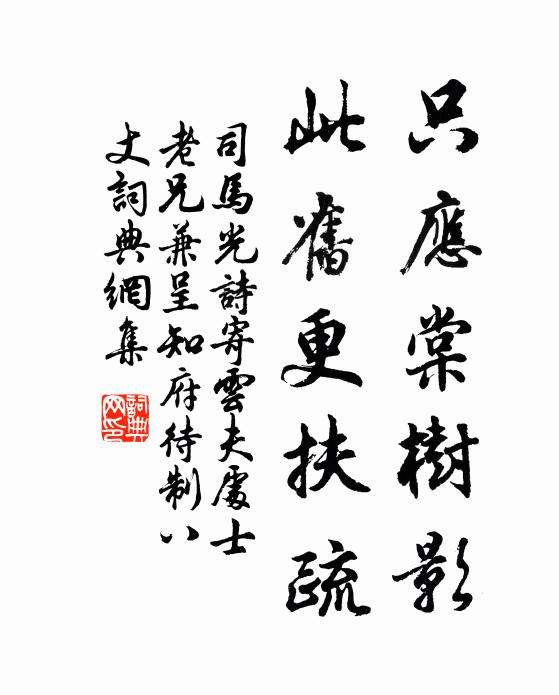 只應棠樹影
此舊更扶疏
司馬光詩寄雲夫處士
老兄兼呈知府待制八
丈詞典網集
詞典
网印